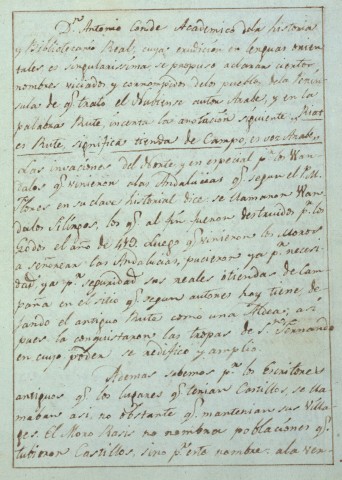 Dn. Antonio Conde Academico dela historia
y Bibliotecario Real, cuya erudicion en lenguas orien
tales es singularissima se propuso aclarar ciertos
nombres viciados y corrompidos delos pueblos dela Penin
sula de qe. trato el Nubiense autor Arabe, y en la
palabra Rute, incerta la anotacion siguiente
es Rute, significa tienda de Campo, en voz Arabe.
Las invaciones del Norte y en especial pr. los Wan
dalos qe. vinieron alas Andalucias qe. segun el P. M.
Flores en su clave historial dice se llamaron Wan
dalos Silingos, los qe. al fin fueron destruidos pr. los
Godos el año de 421. Luego qe. vinieron los Moros
a señorear las Andalucias, pucieron ya pr. necesi
dad, ya pr. seguridad sus reales o tiendas de Cam
paña en el sitio qe. segun autores hoy tiene, de
jando el antiguo Rute como una Aldea; asi
pues la conquistaron las tropas de Sn. Fernando
en cuyo poder se redifico y amplio.
Ademas sabemos pr. los Escritores
antiguos qe. los lugares qe. tenian Castillos, se lla
maban asi, no obstante qe. mantenian sus Villa
ges. El Moro Rasis no nombra poblaciones qe.
tubieron Castillos, sino pr. este nombre: ala ver-